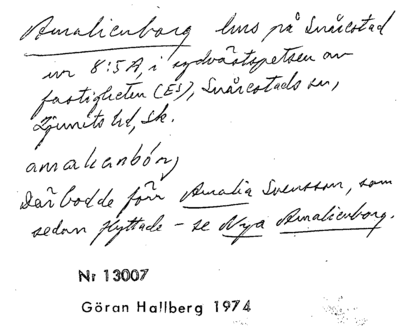 Amalienborg hus på Snårestad
nr 8:5A, i sydvästspetsen av
fastigheten (ES), Snårestads sn,
Ljunits hd, Sk.
amalienbórj
Där bodde förr Amalia Svensson, som
sedan flyttade – se Nya Amalienborg.
Nr 13007
Göran Hallberg 1974